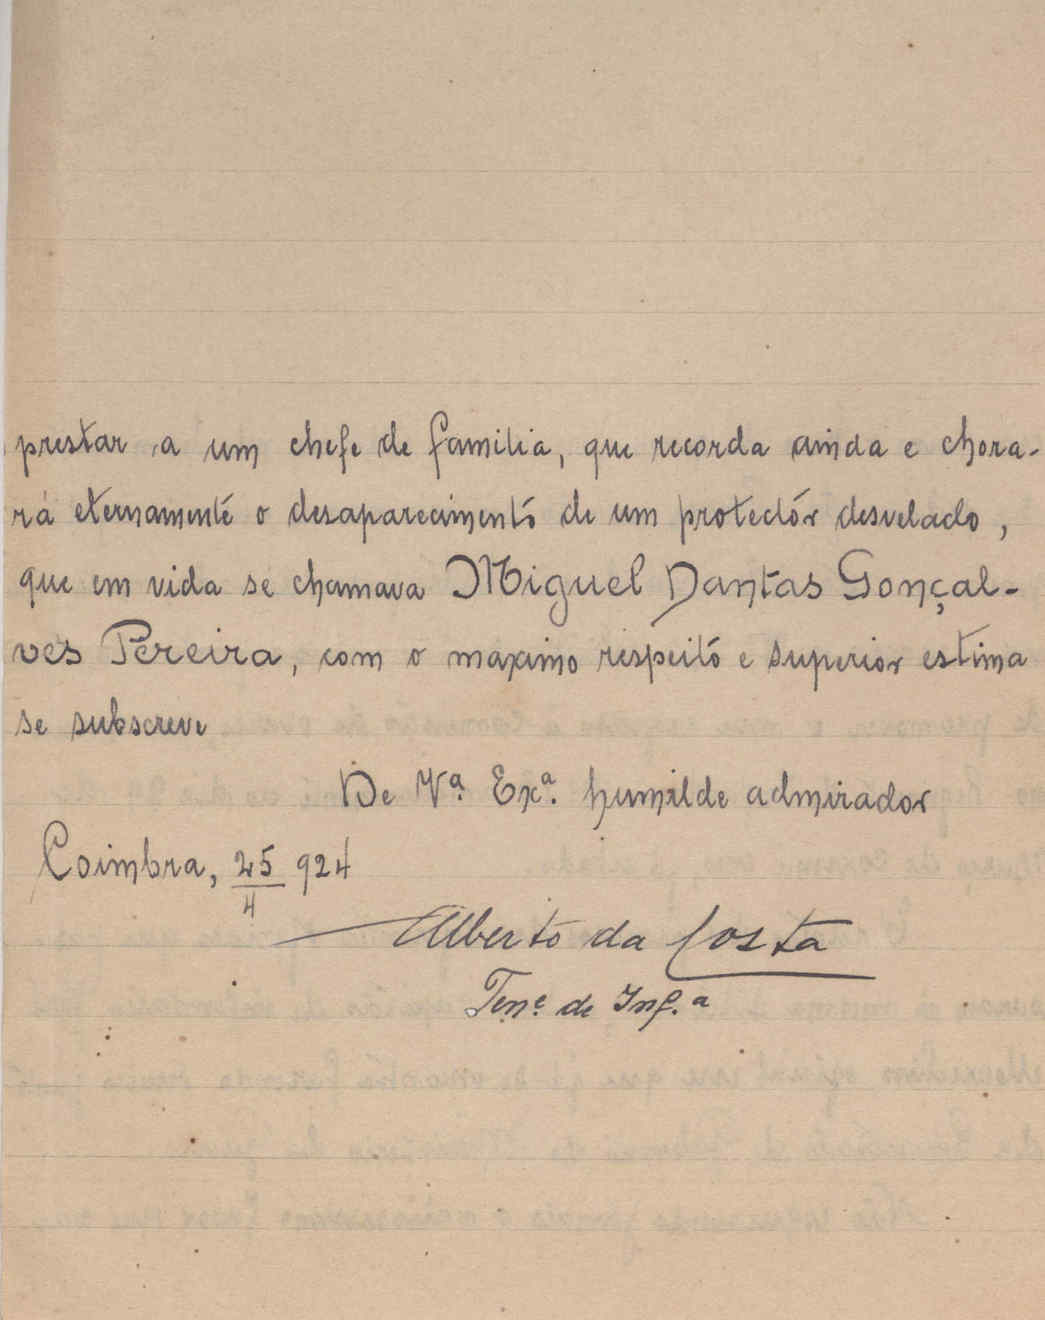 prestar a um chefe de familia, que recorda ainda e chora-
rá eternamenté o desaparecimentó de um protectór desvelado,
que em vida se chamava Miguel Dantas Gonçal-
ves Pereira, com o maximo respeitó e superior estima
se subscreve
De Vª. Exª. humilde admirador
Coimbra, 25/4 924
Alberto da Costa
Tenᵉ. de Inf.ª